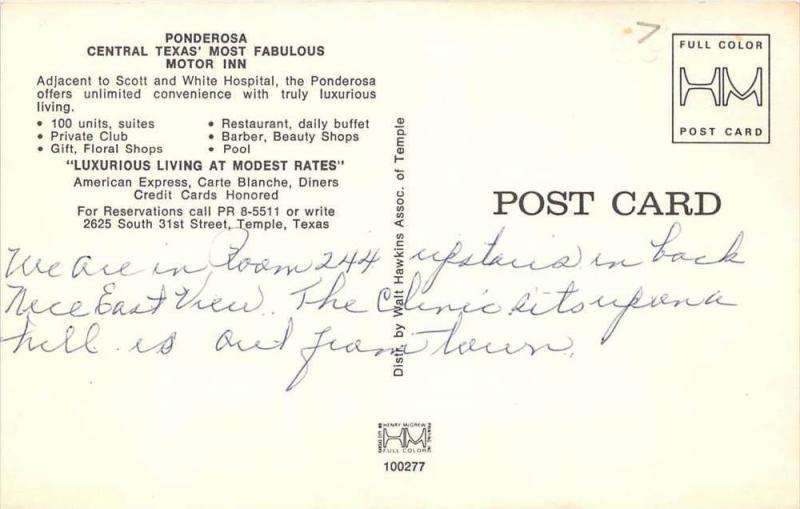 PONDEROSA
CENTRAL TEXAS' MOST FABULOUS
MOTOR INN
Adjacent to Scott and White Hospital, the Ponderosa
offers unlimited convenience with truly luxurious
living.
• 100 units, suites • Restaurant, daily buffet
• Private Club • Barber, Beauty Shops
• Gift, Floral Shops • Pool
"LUXURIOUS LIVING AT MODEST RATES"
American Express, Carte Blanche, Diners
Credit Cards Honored
For Reservations call PR 8-5511 or write
2625 South 31st Street, Temple, Texas
Distr. by Walt Hawkins Assoc. of Temple
FULL COLOR
HM
POST CARD
POST CARD
We are in Room 244 upstairs in back
Nice East View. The Clinic sits up on a
hill is out from town.
HENRY McGREW
HM
FULL COLOR
100277